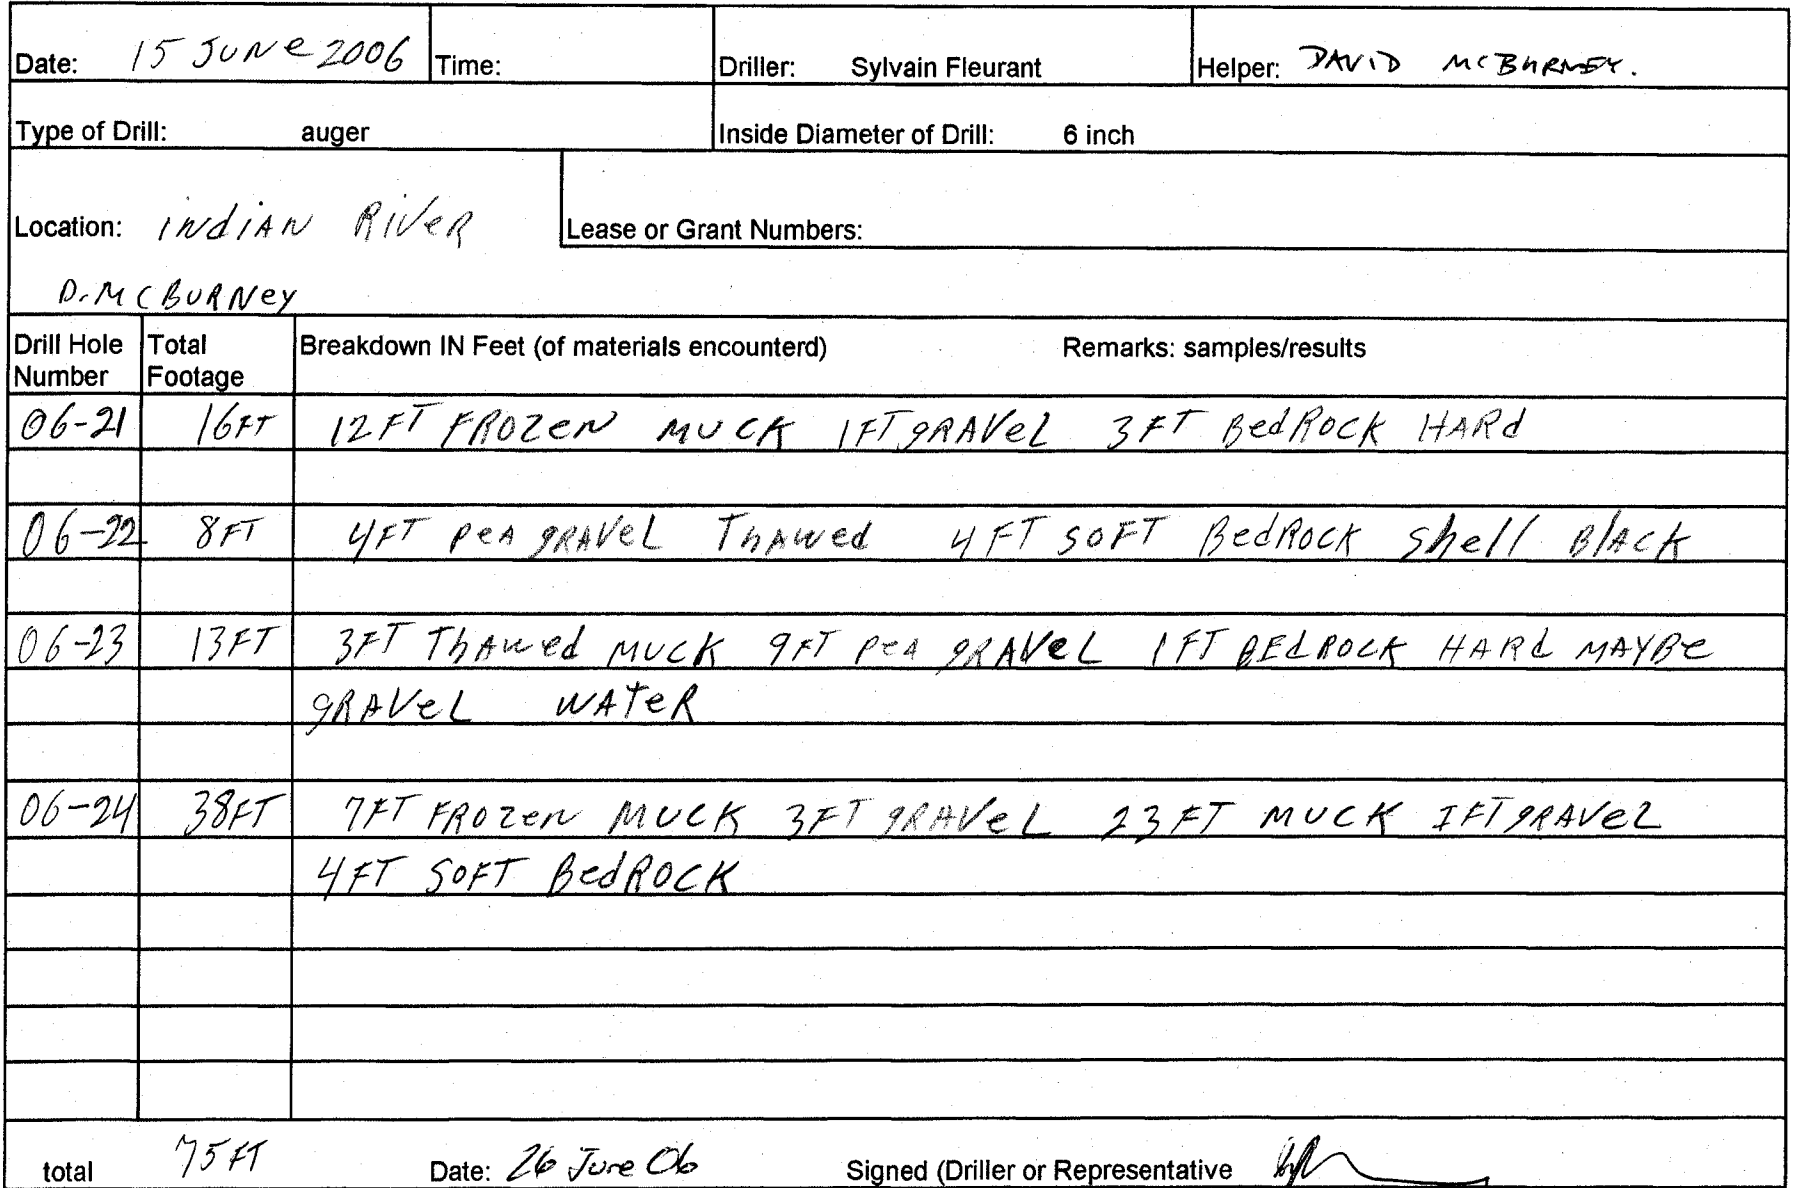 Date: 15 JUNE 2006 Time: Driller: Sylvain Fleurant Helper: DAVID MCBURNEY.
Type of Drill: auger Inside Diameter of Drill: 6 inch
Location: INdiAN RiVeR Lease or Grant Numbers:
D. MCBURNey
Drill Hole Number Total Footage Breakdown IN Feet (of materials encounterd) Remarks: samples/results
06-21 16FT 12FT FROZEN MUCK 1FT gRAVeL 3FT BedROCK HARd
06-22 8FT 4FT PeA gRAVeL ThAwed 4FT SOFT BedROCK Shell BlACK
06-23 13FT 3FT ThAwed MUCK 9FT PeA gRAVeL 1FT BEdROCK HARd MAYBe
gRAVeL WATeR
06-24 38FT 7FT FROzen MUCK 3FT gRAVeL 23FT MUCK 1FT gRAVeL
4FT SOFT BedROCK
total 75FT Date: 26 June 06 Signed (Driller or Representative